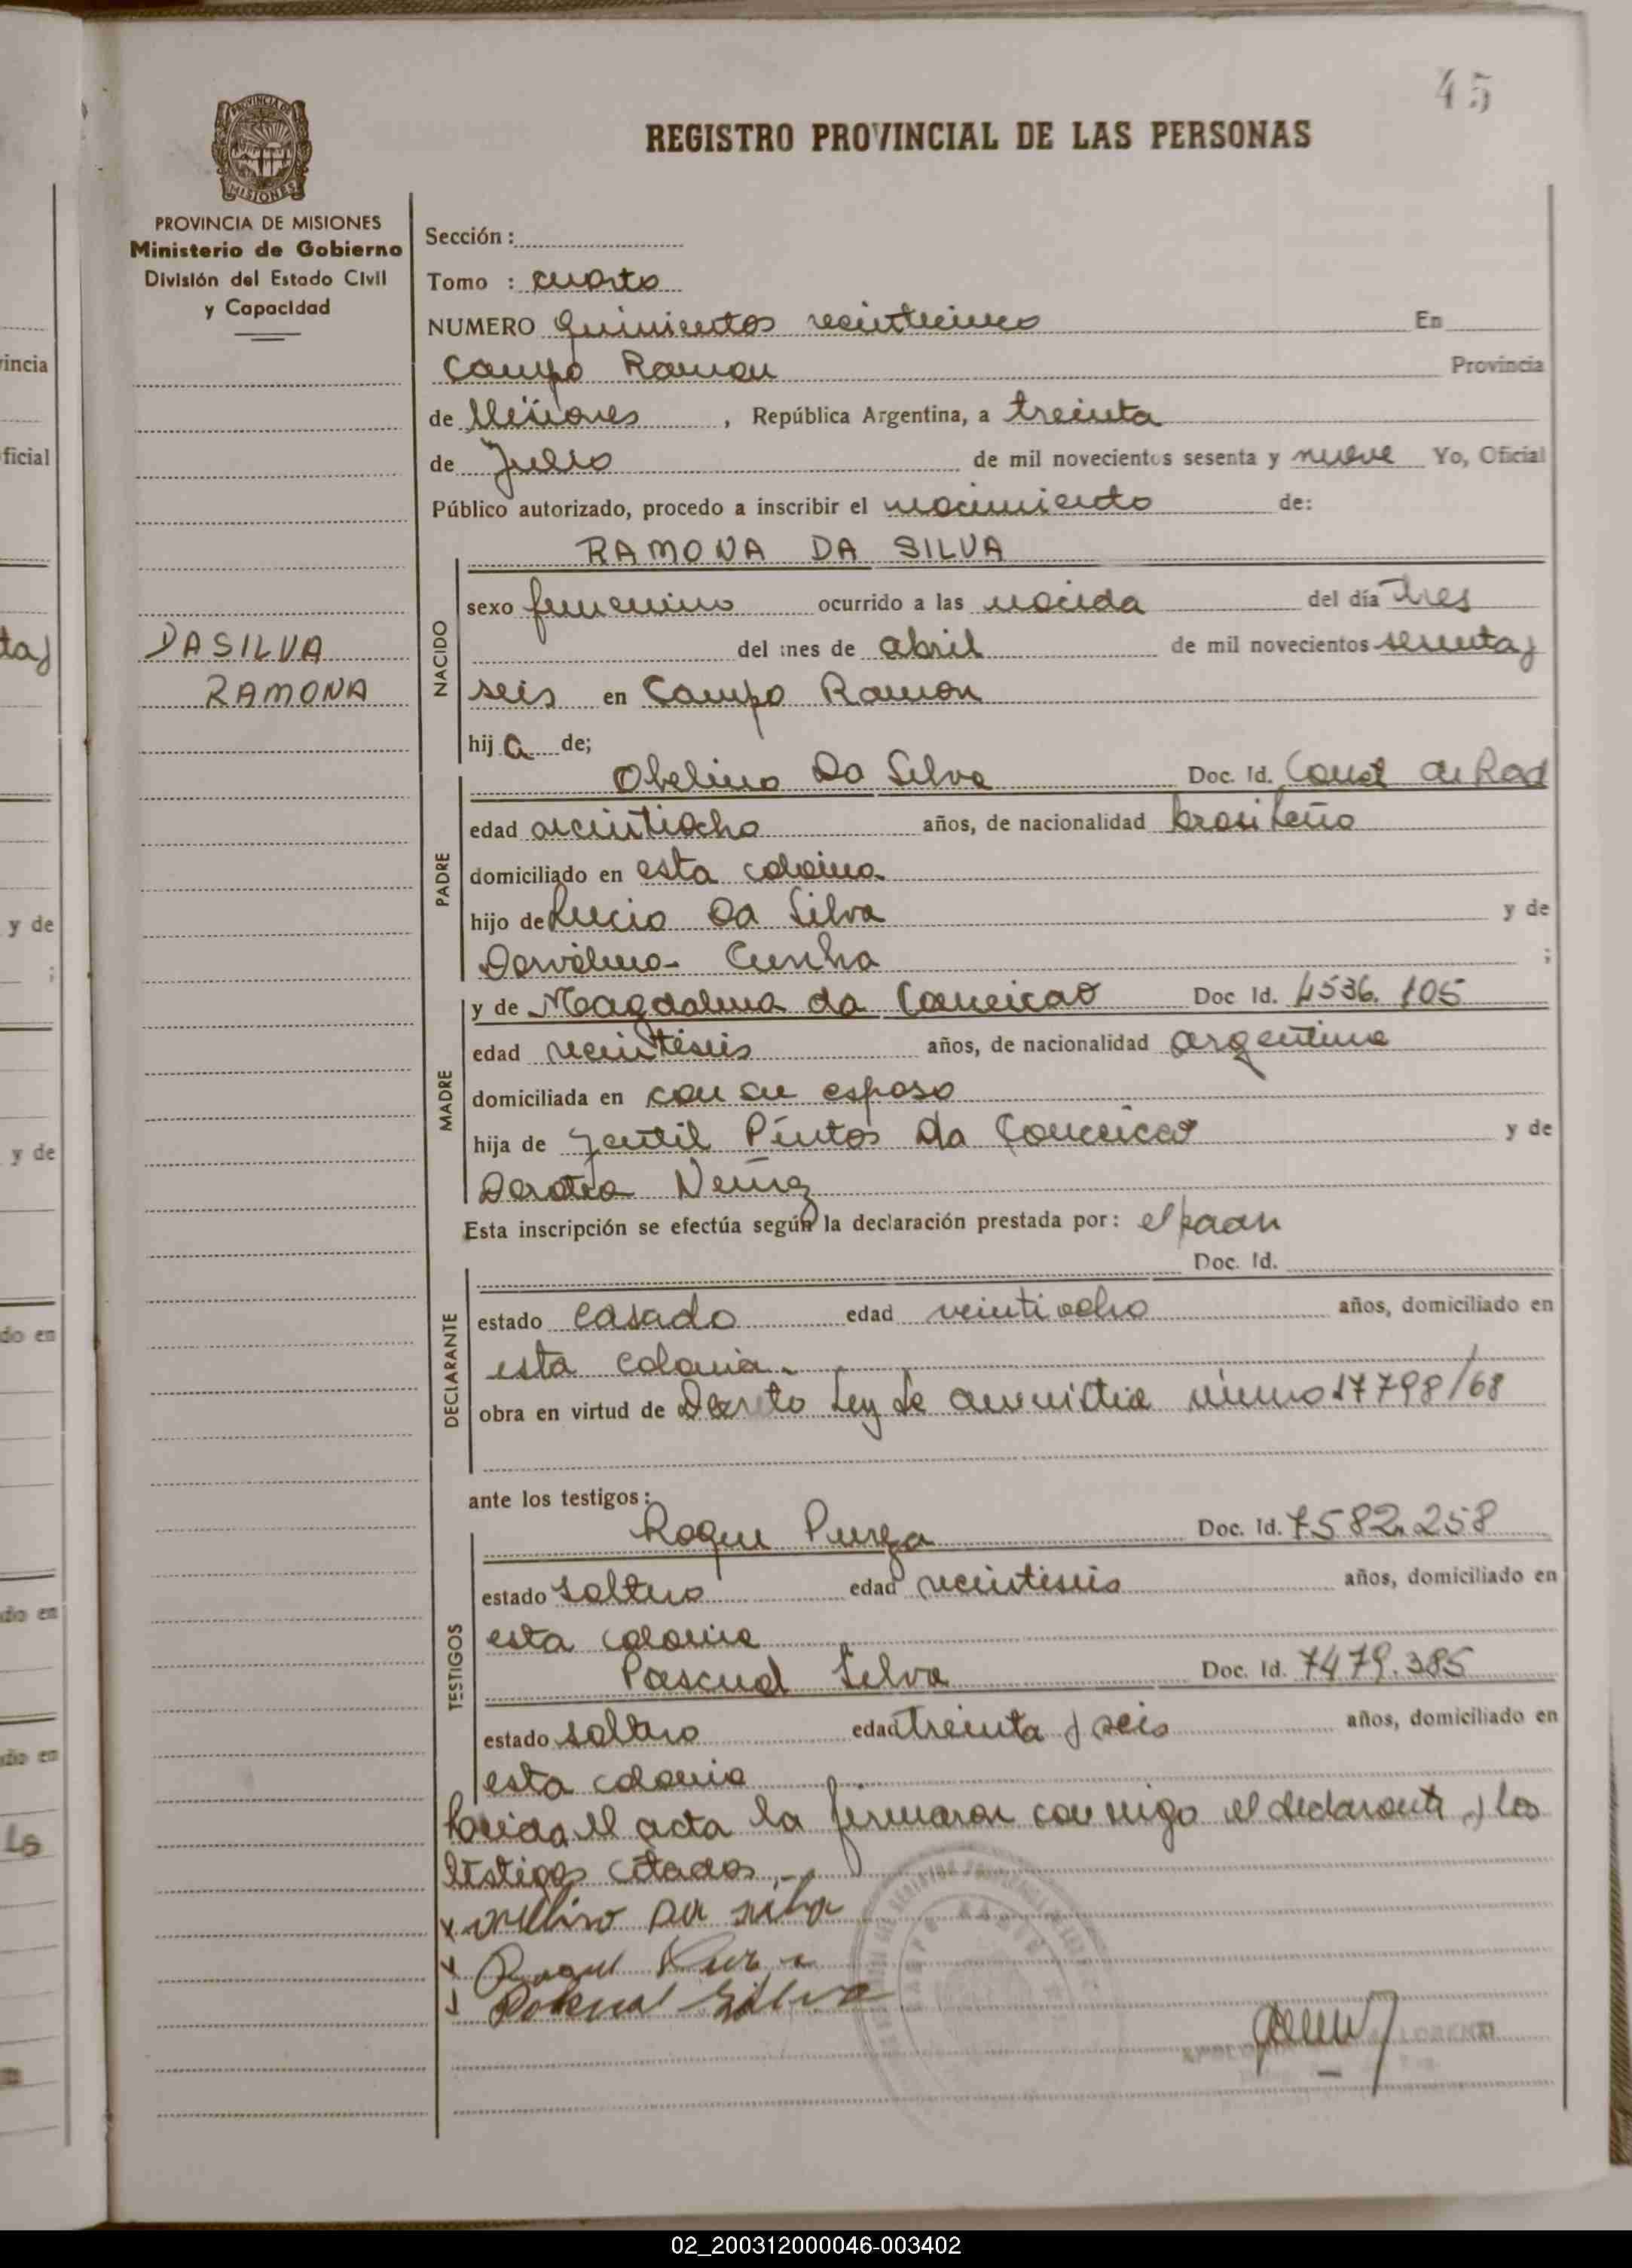 45
REGISTRO PROVINCIAL DE LAS PERSONAS
PROVINCIA DE MISIONES
Ministerio de Gobierno
División del Estado Civil
y Capacidad
DA SILVA
RAMONA
Sección :
Tomo : cuarto
NUMERO Quinientos veinticinco En
Campo Ramon Provincia
de Misiones , República Argentina, a treinta
de Julio de mil novecientos sesenta y nueve Yo, Oficial
Público autorizado, procedo a inscribir el nacimiento de:
RAMONA DA SILVA
NACIDO
sexo femenino ocurrido a las nacida del día tres
del mes de abril de mil novecientos sesenta y
seis en Campo Ramon
hij a de;
PADRE
Obelino Da Silva Doc. Id. Const de Rad
edad veintiocho años, de nacionalidad brasileño
domiciliado en esta colonia
hijo de Lucio Da Silva y de
Cunha ;
MADRE
y de Magdalena da Conceicao Doc Id. 4536.105
edad veintiseis años, de nacionalidad argentina
domiciliada en con su esposo
hija de Gentil Pintos Da Conceicao y de
Dorotea Nuñez
Esta inscripción se efectúa según la declaración prestada por: el padre
Doc. Id.
DECLARANTE
estado casado edad veintiocho años, domiciliado en
esta colonia.
obra en virtud de Decreto Ley de amnistia número 17798/68
ante los testigos:
TESTIGOS
Roque Doc. Id. 7582.258
estado soltero edad veintiseis años, domiciliado en
esta colonia
Pascual Silva Doc. Id. 7479.385
estado soltero edad treinta y seis años, domiciliado en
esta colonia
Leida el acta la firmaron conmigo el declarante y los
testigos citados.-
x Da silva
x
x Silva
LORENZI
02_200312000046-003402